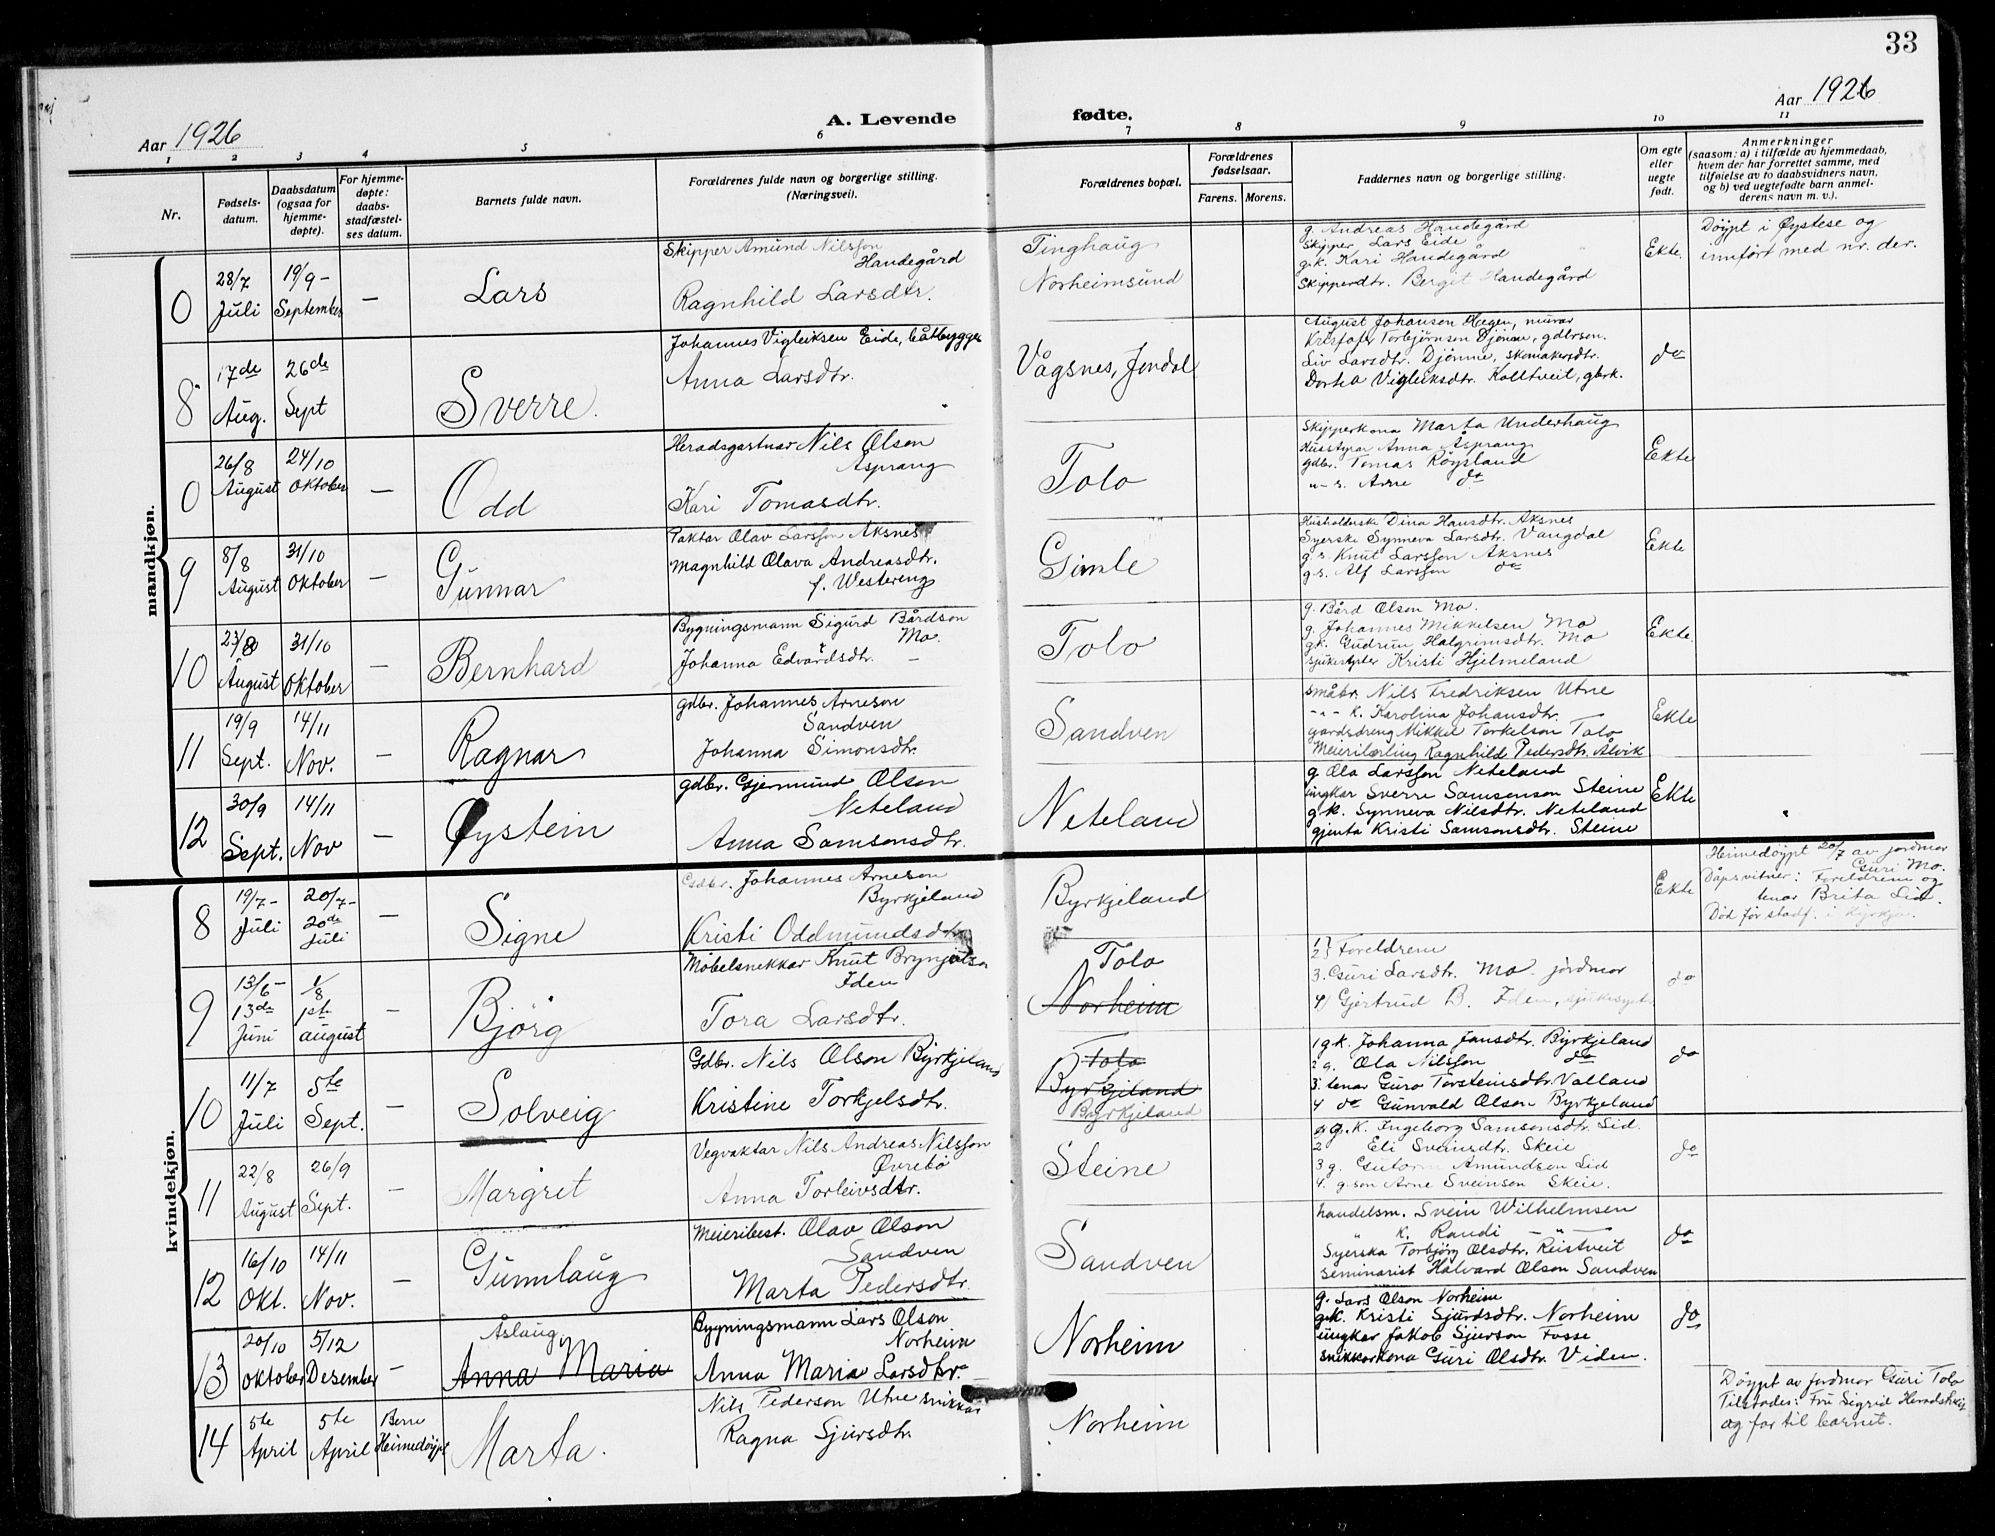 33
Aar 1926
A. Levende
fødte.
Aar 1926
1 2 3 4 5 6 7 8 9 10 11
Nr.
Fødsels-
datum.
Daabsdatum
(ogsaa for
hjemme-
døpte).
For hjemme-
døpte:
daabs-
stadfæstel-
ses datum.
Barnets fulde navn.
Forældrenes fulde navn og borgerlige stilling.
(Næringsveil).
Forældrenes bopæl.
Forældrenes
fødselsaar.
Farens. Morens.
Faddernes navn og borgerlige stilling.
Om egte
eller
uegte
født.
Anmerkninger
(saasom: a) i tilfælde av hjemmedaab,
hvem der har forrettet samme, med
tilføielse av to daabsvidners navn,
og b) ved uegtefødte barn anmel-
derens navn m. v.).
mandkjøn.
0
28/7
Juli
19/9 -
September
—
Lars
Skipper Amund Nilsson
Handegård
Ragnhild Larsdtr.
Tinghaug
Norheimsund
g. Andreas Handegård
Skipper Lars Eide
g.k. Kari Handegård
Skipperdtr. Bergit Handegård
Ekte.
Döypt i Öystese og
innført med nr. der.
8
17de
Aug.
26de
Sept
Sverre.
Johannes Vigleiksen Eide, båtbygger
Anna Larsdtr.
Vågsnes, Jondal
August Johanson Hegen, murar
Kristofer Torbjörnsen Djönne, gdbrson.
Liv Larsdtr. Djönne, skomakerdtr.
Dorta Vigleiksdtr. Kolltveit, gbrk.
do
0
26/8
August
24/10
Oktober
—
Odd
Heradsgartnar Nils Olson
Asprang
Kari Tomasdtr.
Tolo
Skipperkona Marta Underhaug
Husstyrar Anna Asprang
gdbr. Tomas Röysland
" s. Arne do
Ekte
9
8/8
August
31/10
Oktober
—
Gunnar
Faktor Olav Larsson Aksnes
Magnhild Olava Andreasdtr.
f. Westereng
Gimle
Husholderske Dina Hansdtr. Aksnes
Syerske Synneva Larsdtr. Vangdal
g.s. Knut Larsson Aksnes
g.s. Alf Larsson do
Ekte
10
23/8
August
31/10
Oktober
—
Bernhard
Bygningsmann Sigurd Bårdson
Mo.
Johanna Edvardsdtr. —
Tolo
g. Bård Olson Mo.
g. Johannes Mikkelsen Mo
g.k. Gudrun Halgrimsdtr. Mo
sjukesyster Kristi Hjelmeland
Ekte.
11
19/9
Sept.
14/11
Nov.
—
Ragnar
gdbr. Johannes Arneson
Sandven
Johanna Simonsdtr.
Sandven
småbr. Nils Fredriksen Utne
-"- k. Karolina Johansdtr.
gardsdreng Mikkel Torkelson Tolo
Meierilærling Ragnhild Pedersdtr. Ålvik
Ekte
12
30/9
Sept.
14/11
Nov
—
Øystein
gdbr. Gjermund Olson
Neteland
Anna Samsonsdtr.
Neteland
g. Ola Larsson Neteland
ungkar Sverre Samsonson Steine
g.k. Synneva Nilsdtr. Neteland
gjenta Kristi Samsonsdtr. Steine
Ekte
kvindekjøn.
8
19/7 -
Juli
20/7 -
20de
Juli
—
Signe
Gdbr. Johannes Arneson
Byrkjeland
Kristi Oddmundsdtr
Byrkjeland
Ekte
Heimedöypt 20/7 av jordmor
Guri Mo.
Dåpsvitner: Foreldrene og
tenar Brita Lid.
Död för stadf. i kyrkja.
9
13/6 -
13de
Juni
1/8
1ste
august
-
Björg
Möbelsnekkar Knut Brynjulson
Iden
Tora Larsdtr.
Tolo
Norheim
1)
2) Foreldrene
3. Guri Larsdtr. Mo. jordmor
4) Gjertrud B. Iden, sjukesyst.
do
10
11/7
Juli
5te
Sept.
—
Solveig
Gdbr. Nils Olson Byrkjeland
Kristine Torkjelsdtr.
Tolo
Byrkjeland
Byrkjeland
1 g.k. Johanna Jansdtr. Byrkjeland
2 g. Ola Nilsson do
3. tenar Guro Torsteinsdtr. Valland
4 do Gunvald Olson Byrkjeland
do
11
22/8
August
26/9
Sept.
—
Margret
Vegvaktar Nils Andreas Nilsson
Övrebö
Anna Torleivsdtr.
Steine
1 g.k. Ingeborg Samsonsdtr. Lid.
2 Eli Sveinsdtr. Skeie
3 g. Gutorm Amundson Lid
4. g.son Arne Sveinson Skeie.
do
12
16/10
Okt.
14/11
Nov.
—
Gunnlaug
Meieribest. Olav Olson
Sandven
Marta Pedersdtr.
Sandven
handelsm. Svein Wilhelmsen
" k. Randi - " -
Syerska Torbjörg Olsdtr. Reistveit
seminarist Halvard Olson Sandven
do
13
20/10
Oktober
5/12
Desember
—
Åslaug
Anna Maria
Bygningsmann Lars Olson
Norheim
Anna Maria Larsdtr.
Norheim
g. Lars Olson Norheim
g.k. Kristi Sjurdsdtr. Norheim
ungkar Jakob Sjurson Fosse
snikkarkona Guri Olsdtr. Viden.
do
14
5te
April
5te
April
Berre
Heimedöypt
Marta.
Nils Pederson Utne snikkar
Ragna Sjursdtr.
Norheim
Döypt av jordmor Guri Tolo
Tilstades: Fru Sigrid
og far til barnet.